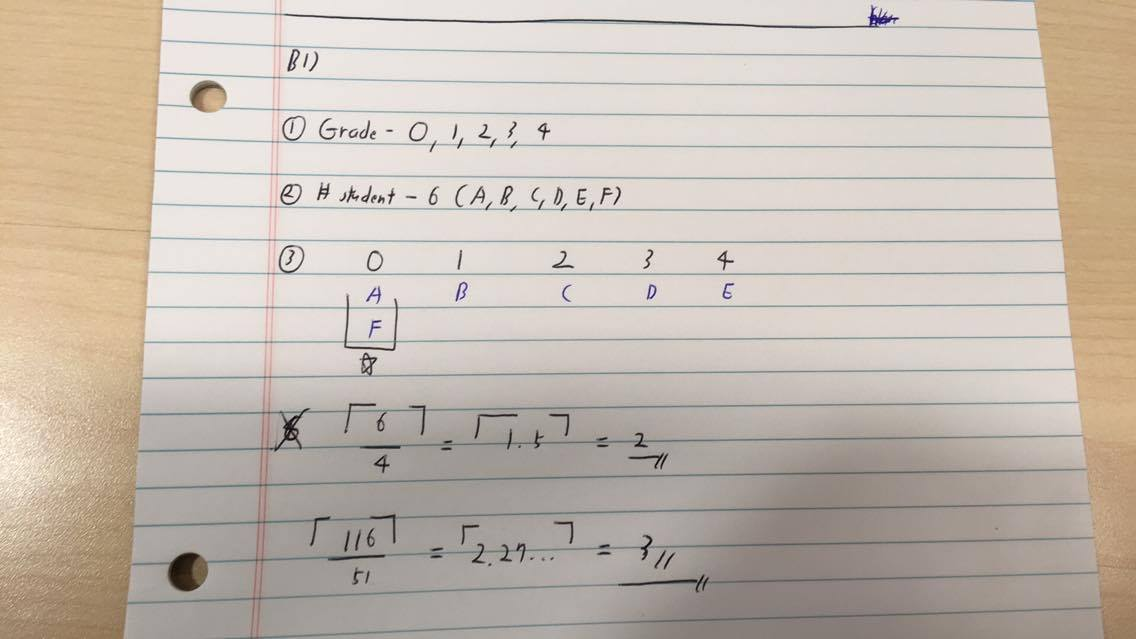 B1)
① Grade - 0, 1, 2, 3, 4
② # student - 6 (A, B, C, D, E, F)
③ 0 1 2 3 4
A B C D E
F
☆
⌈6/4⌉ = ⌈1.5⌉ = 2
⌈116/51⌉ = ⌈2.27...⌉ = 3